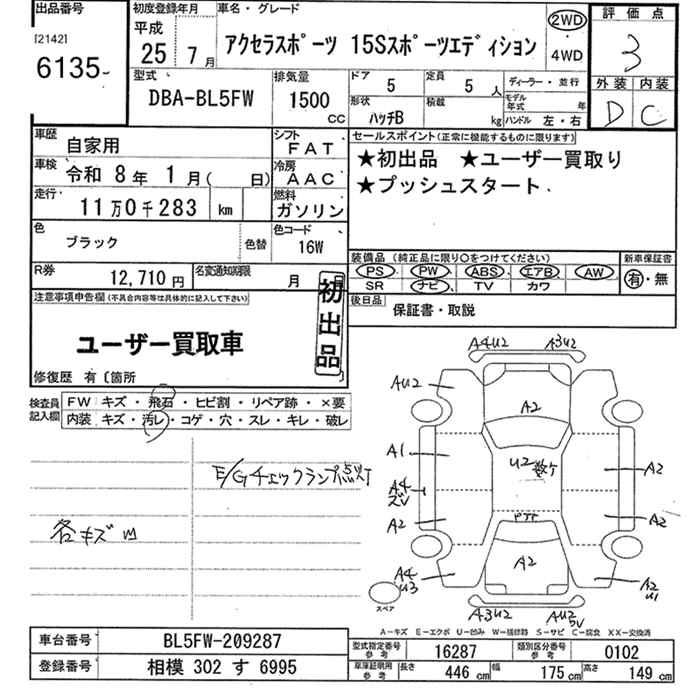 出品番号
[2142]
6135
初度登録年月
平成
25年 7月
車名・グレード
アクセラスポーツ 15Sスポーツエディション
2WD
4WD
評価点
3
外装 内装
D C
型式
DBA-BL5FW
排気量
1500
CC
ドア
5
定員
5人
形状
ハッチB
積載
kg
ディーラー・並行
モデル年式 年
ハンドル 左・右
車歴
自家用
シフト
FAT
車検
令和 8年 1月( 日)
冷房
AAC
走行
11万0千283 km
燃料
ガソリン
色
ブラック
色替
色コード
16W
R券
12,710円
名変通知期限
月
セールスポイント(正常に機能するものに限ります)
★初出品 ★ユーザー買取り
★プッシュスタート
装備品(純正品に限り〇をつけてください)
PS PW ABS エアB AW
SR ナビ TV カワ
新車保証書
有・無
後日品
保証書・取説
注意事項申告欄(不具合内容等は具体的に記入して下さい)
初出品
ユーザー買取車
修復歴 有〔箇所
検査員記入欄
FW キズ・飛石・ヒビ割・リペア跡・×要
内装 キズ・汚レ・コゲ・穴・スレ・キレ・破レ
E/Gチェックランプ点灯
各キズ
A4U2 A3U2
AU2
A2
A1
U2
A2
A4
A2
A2
A2
A4
U3
A2
U1
スペア
A3U2
A-キズ E-エクボ U-凹み W-補修跡 S-サビ C-腐食 XX-交換済
車台番号
BL5FW-209287
登録番号
相模 302 す 6995
型式指定番号
参考
16287
類別区分番号
参考
0102
車庫証明用
参考
長さ
446 cm
幅
175 cm
高さ
149 cm